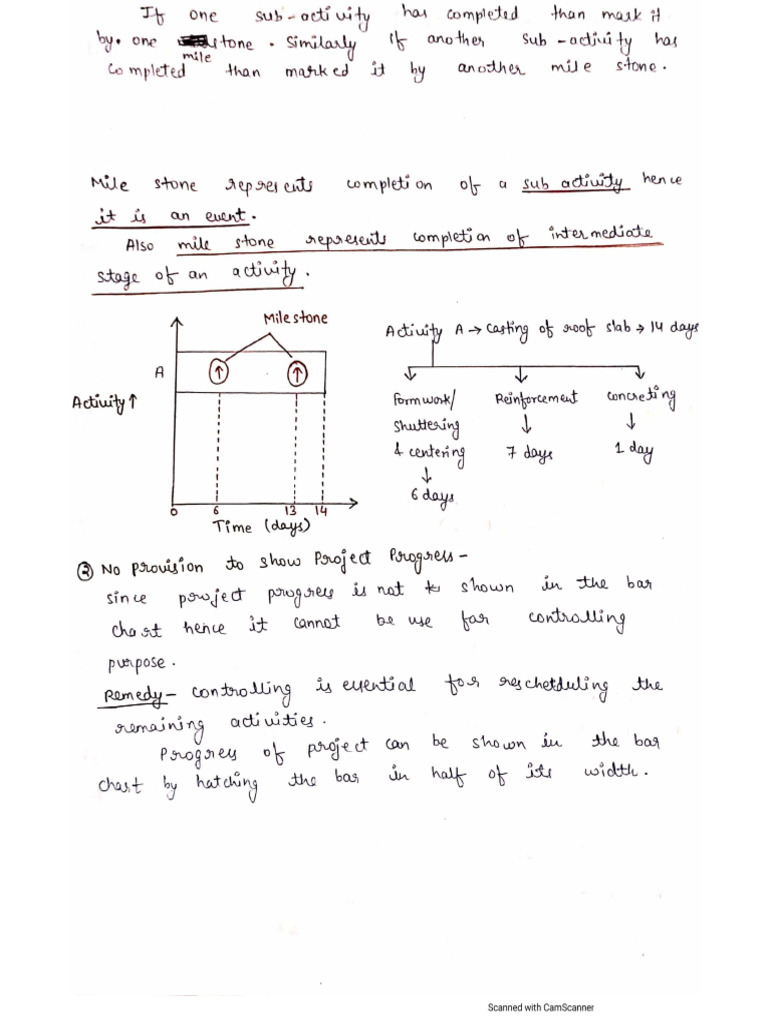 If one sub-activity has completed than mark it
by one mile stone. Similarly if another sub-activity has
completed than marked it by another mile stone.
Mile stone represents completion of a sub activity hence
it is an event.
Also mile stone represents completion of intermediate
stage of an activity.
Milestone
A
Activity↑
0 6 13 14
Time (days)
Activity A → casting of roof slab → 14 days
Formwork/
Shuttering
& centering
↓
6 days
Reinforcement
↓
7 days
Concreting
↓
1 day
② No provision to show Project Progress-
since project progress is not shown in the bar
chart hence it cannot be use for controlling
purpose.
Remedy- controlling is essential for rescheduling the
remaining activities.
Progress of project can be shown in the bar
chart by hatching the bar in half of its width.
Scanned with CamScanner